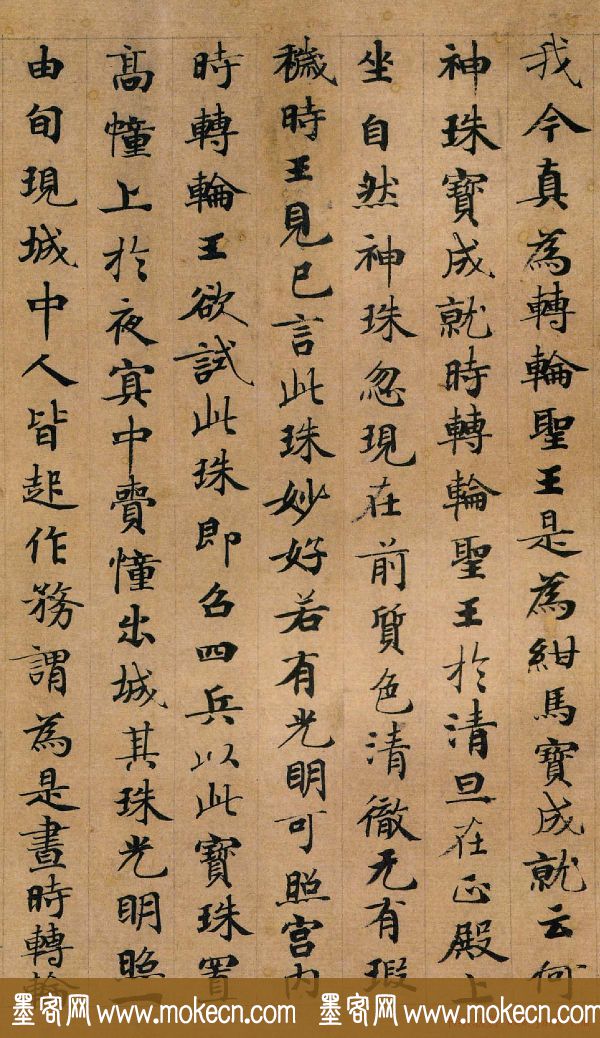 我今真為轉輪聖王是為紺馬寶成就云何
神珠寶成就時轉輪聖王於清旦在正殿上
坐自然神珠忽現在前質色清徹无有瑕
穢時王見已言此珠妙好若有光明可照宮內
時轉輪王欲試此珠即召四兵以此寶珠置
高幢上於夜冥中賷幢出城其珠光明照一
由旬現城中人皆起作務謂為是晝時轉輪
墨客网 www.mokecn.com 墨客网 www.mokecn.com